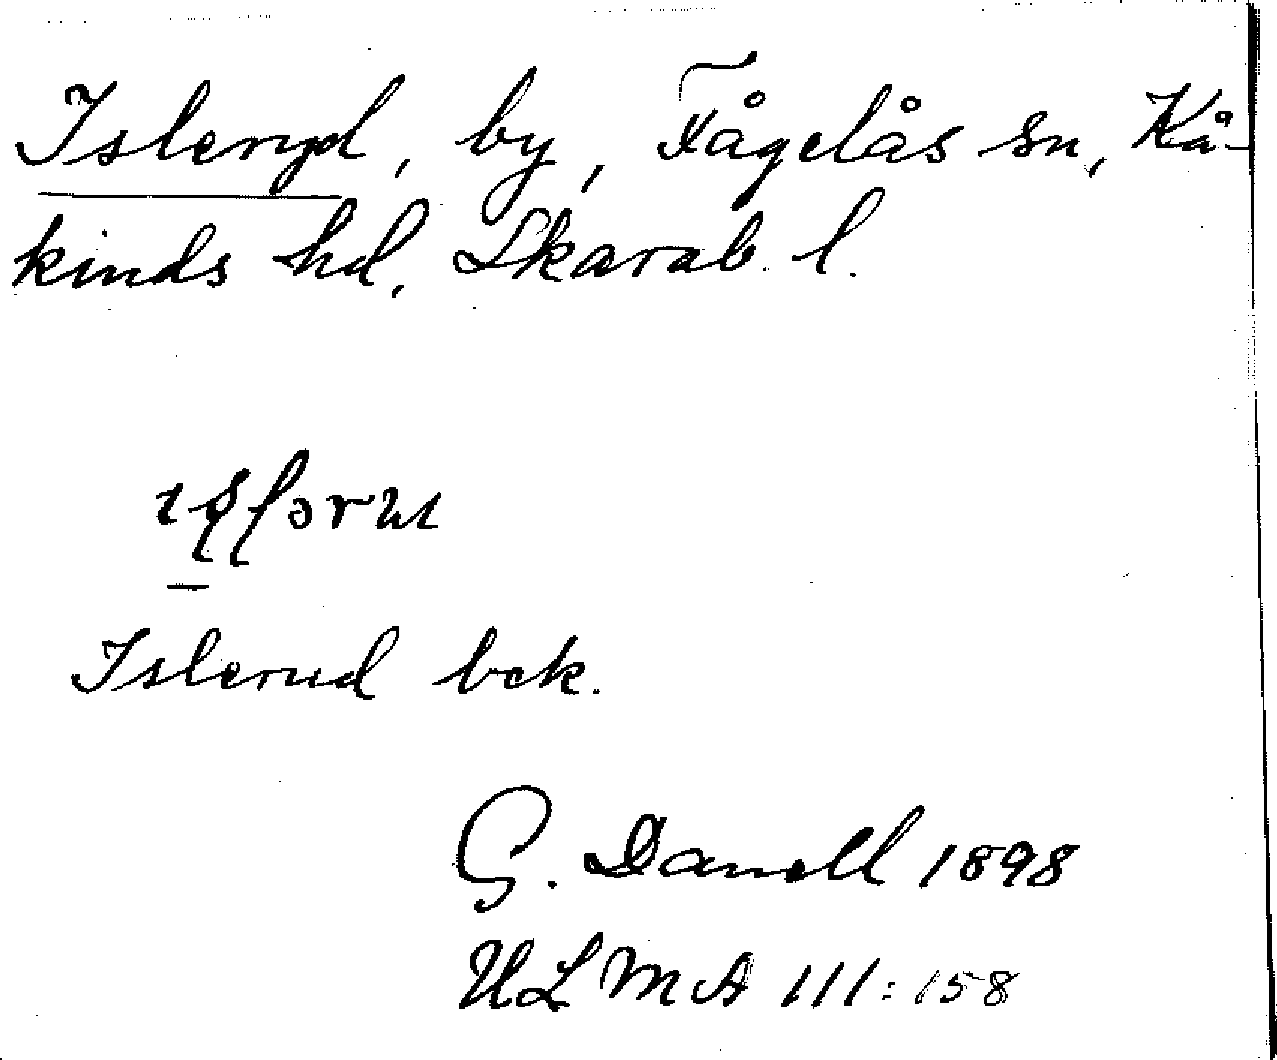 Isleryd, by, Fågelås sn, Kå-
kinds hd, Skarab. l.
Islerud bck.
G. Danell 1898
ULMA 111:158